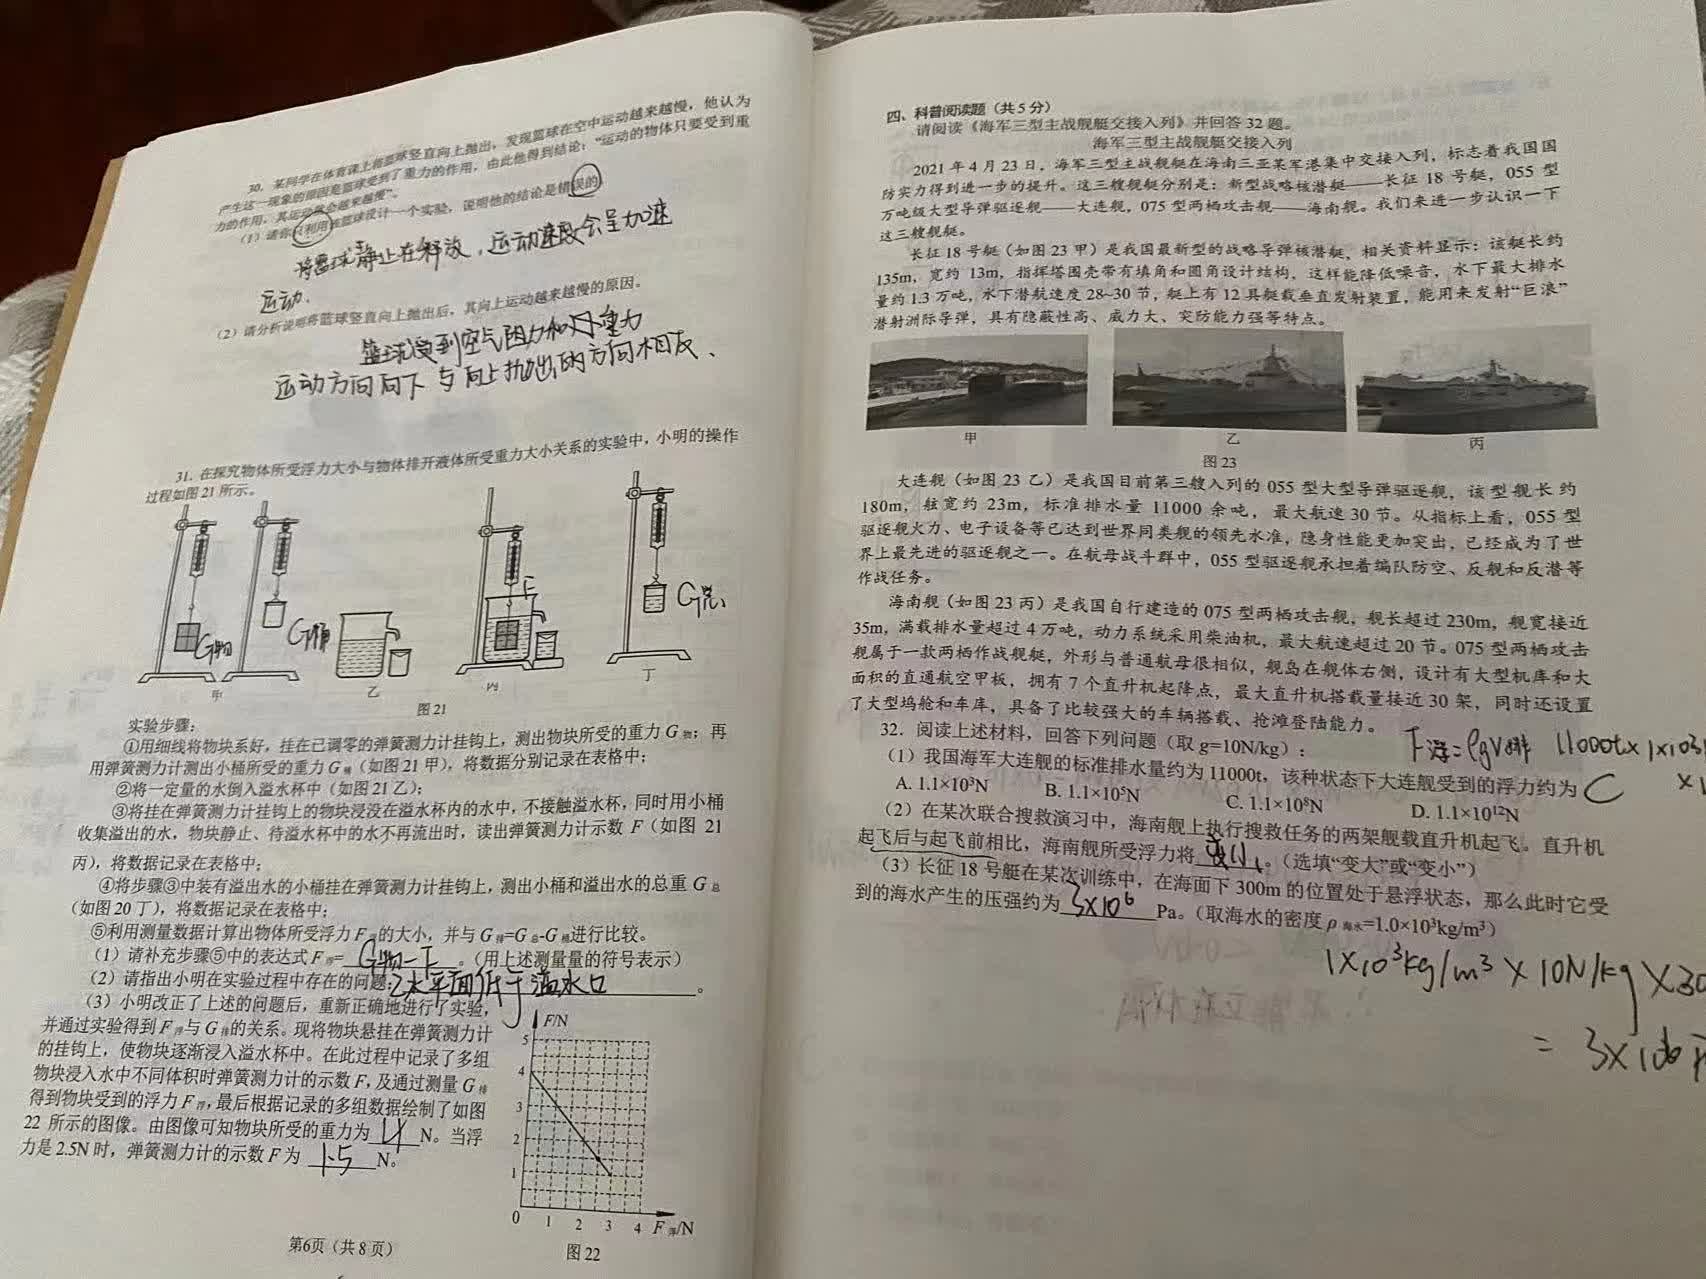 30. 某同学在体育课上将篮球竖直向上抛出，发现篮球在空中运动越来越慢，他认为
产生这一现象的原因是篮球受到了重力的作用，由此他得到结论：“运动的物体只要受到重
力的作用，其运动就会越来越慢”。
（1）请你只利用该篮球设计一个实验，说明他的结论是错误的
将篮球静止在释放，运动速度会呈加速
运动.
（2）请分析说明将篮球竖直向上抛出后，其向上运动越来越慢的原因。
篮球受到空气阻力和重力
运动方向向下与向上抛出的方向相反、
31. 在探究物体所受浮力大小与物体排开液体所受重力大小关系的实验中，小明的操作
过程如图 21 所示。
G物
G桶
F
G总
甲
乙
丙
丁
图 21
实验步骤：
①用细线将物块系好，挂在已调零的弹簧测力计挂钩上，测出物块所受的重力 G 物；再
用弹簧测力计测出小桶所受的重力 G 桶（如图 21 甲），将数据分别记录在表格中；
②将一定量的水倒入溢水杯中（如图 21 乙）；
③将挂在弹簧测力计挂钩上的物块浸没在溢水杯内的水中，不接触溢水杯，同时用小桶
收集溢出的水，物块静止、待溢水杯中的水不再流出时，读出弹簧测力计示数 F（如图 21
丙），将数据记录在表格中；
④将步骤③中装有溢出水的小桶挂在弹簧测力计挂钩上，测出小桶和溢出水的总重 G 总
（如图 20 丁），将数据记录在表格中；
⑤利用测量数据计算出物体所受浮力 F 浮的大小，并与 G 排=G 总-G 桶进行比较。
（1）请补充步骤⑤中的表达式 F 浮= G物-F 。（用上述测量量的符号表示）
（2）请指出小明在实验过程中存在的问题：乙水平面低于溢水口 。
（3）小明改正了上述的问题后，重新正确地进行了实验，
并通过实验得到 F 浮与 G 排的关系。现将物块悬挂在弹簧测力计
的挂钩上，使物块逐渐浸入溢水杯中。在此过程中记录了多组
物块浸入水中不同体积时弹簧测力计的示数 F，及通过测量 G 排
得到物块受到的浮力 F 浮，最后根据记录的多组数据绘制了如图
22 所示的图像。由图像可知物块所受的重力为 4 N。当浮
力是 2.5N 时，弹簧测力计的示数 F 为 1.5 N。
F/N
5
4
3
2
1
0 1 2 3 4 F 浮/N
图 22
第6页（共 8 页）
四、科普阅读题（共 5 分）
请阅读《海军三型主战舰艇交接入列》并回答 32 题。
海军三型主战舰艇交接入列
2021 年 4 月 23 日，海军三型主战舰艇在海南三亚某军港集中交接入列，标志着我国国
防实力得到进一步的提升。这三艘舰艇分别是：新型战略核潜艇——长征 18 号艇，055 型
万吨级大型导弹驱逐舰——大连舰，075 型两栖攻击舰——海南舰。我们来进一步认识一下
这三艘舰艇。
长征 18 号艇（如图 23 甲）是我国最新型的战略导弹核潜艇，相关资料显示：该艇长约
135m，宽约 13m，指挥塔围壳带有填角和圆角设计结构，这样能降低噪音，水下最大排水
量约 1.3 万吨，水下潜航速度 28~30 节，艇上有 12 具艇载垂直发射装置，能用来发射“巨浪”
潜射洲际导弹，具有隐蔽性高、威力大、突防能力强等特点。
甲
乙
丙
图 23
大连舰（如图 23 乙）是我国目前第三艘入列的 055 型大型导弹驱逐舰，该型舰长约
180m，舷宽约 23m，标准排水量 11000 余吨，最大航速 30 节。从指标上看，055 型
驱逐舰火力、电子设备等已达到世界同类舰的领先水准，隐身性能更加突出，已经成为了世
界上最先进的驱逐舰之一。在航母战斗群中，055 型驱逐舰承担着编队防空、反舰和反潜等
作战任务。
海南舰（如图 23 丙）是我国自行建造的 075 型两栖攻击舰，舰长超过 230m，舰宽接近
35m，满载排水量超过 4 万吨，动力系统采用柴油机，最大航速超过 20 节。075 型两栖攻击
舰属于一款两栖作战舰艇，外形与普通航母很相似，舰岛在舰体右侧，设计有大型机库和大
面积的直通航空甲板，拥有 7 个直升机起降点，最大直升机搭载量接近 30 架，同时还设置
了大型坞舱和车库，具备了比较强大的车辆搭载、抢滩登陆能力。
32. 阅读上述材料，回答下列问题（取 g=10N/kg）：
F浮=ρgV排 11000t×1×103
（1）我国海军大连舰的标准排水量约为 11000t，该种状态下大连舰受到的浮力约为 C
A. 1.1×10³N B. 1.1×10⁵N C. 1.1×10⁸N D. 1.1×10¹²N
（2）在某次联合搜救演习中，海南舰上执行搜救任务的两架舰载直升机起飞。直升机
起飞后与起飞前相比，海南舰所受浮力将 变小 。（选填“变大”或“变小”）
（3）长征 18 号艇在某次训练中，在海面下 300m 的位置处于悬浮状态，那么此时它受
到的海水产生的压强约为 3×10⁶ Pa。（取海水的密度 ρ 海水=1.0×10³kg/m³）
1×10³kg/m³×10N/kg×30
= 3×106